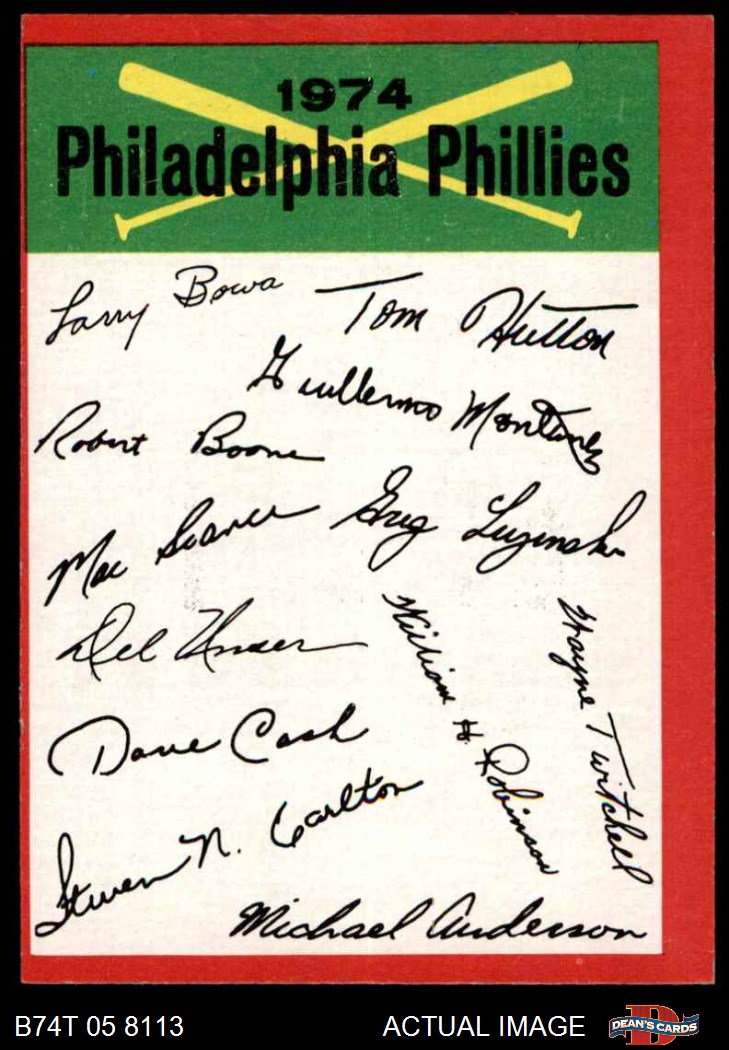 1974
Philadelphia Phillies
Larry Bowa
Tom Hutton
Guillermo Montanez
Robert Boone
Mac Scarce
Greg Luzinski
Del Unser
William H. Robinson
Wayne Twitchell
Dave Cash
Steven N. Carlton
Michael Anderson
B74T 05 8113
ACTUAL IMAGE
DEAN'S CARDS